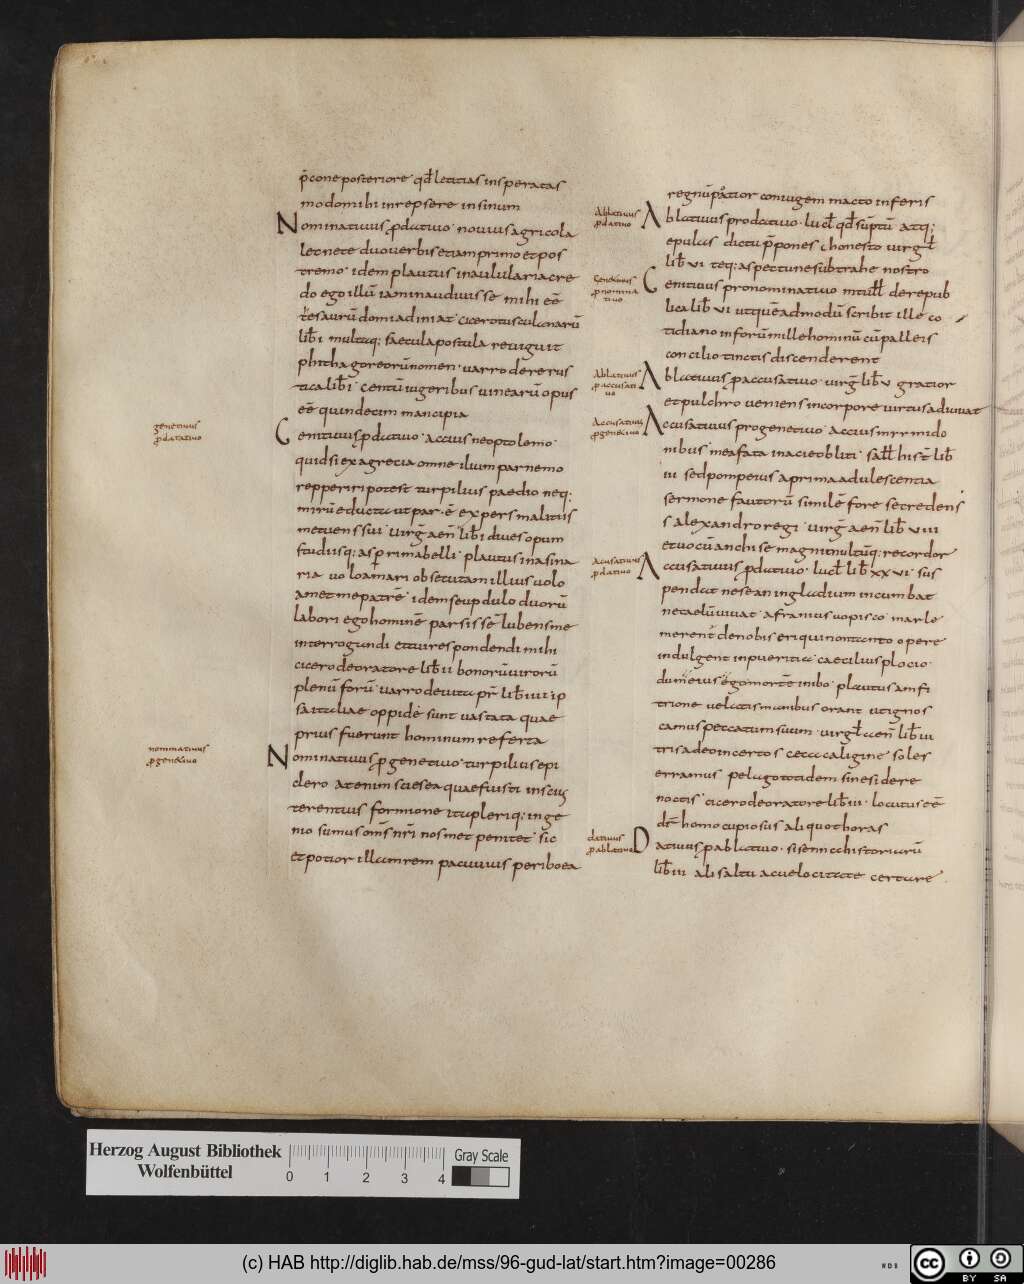 p̄cone posteriore qđ letitias insperatas
modo mihi inrepsere in sinum
Nominativus ꝓ dativo novius agricola
lecnete duo verbis etiam primo et pos
tremo idem plautus in aulularia cre
do ego illū iam inaudivisse mihi eē
tesaurū domi cicero tusculanarū
lib̄ i multaq; saecula postula re viguit
phithagoreorū nomen varro de re rus
tica lib̄ i centū iugeribus vinearū opus
eē quindecim mancipia
genetivus
ꝓ datativo
Genitivus ꝓ dativo accius neoptolemo
quid si ex agrecia omne ilium par nemo
repperiri potest turpilius paedio neq;
mirū educta ut par ē expers malitiis
metuens sui virḡ aen̄ lib̄ i dives opum
studiisq; asꝑrima belli plautus in asina
ria vo loamari obsecutam illius volo
amet me patrē idem seupdulo duorū
labori ego hominē parsissē lubens me
interrogundi et tui respondendi mihi
cicero de oratore lib̄ ii bonorū virorū
plenū forū varro de vita pr̄ lib̄ iii ip
sa italiae oppide sunt vastata quae
prius fuerunt hominum referta
nominativus
ꝓ genetivo
Nominativus ꝓ genetivo turpilius epi
clero atenim scies ea quae fuisti inscius
terentius formione ita pleriq; inge
nio sumus om̄s nr̄i nosmet penitet sic
et potior illam rem pacuvius periboea
regnū potior coniugem macto inferis
Ablativus
ꝓ dativo
Ablativus pro dativo lucł qđ sūptū atq;
epulas dictu p̄pones honesto virgł
lib̄ vi teq; aspectu ne subtrahe nostro
Genetivus
ꝓ nomina
tivo
Genitivus pro nominativo m tułł de repub
lica lib̄ vi utquēadmodū scribit ille co
tidiano in forū mille hominū cū palleis
concilio tinctis discenderent
Ablativus
ꝓ accusati
vo
Ablativus ꝓ accusativo virḡ lib̄ v gratior
et pulchro veniens in corpore virtus adiuvat
Accusativus
ꝓ genetivo
Accusativus pro genetivo accius mirmido
nibus mea fata inacie obliti sałł hist̄ lib̄
iii sed pompeius a prima adulescentia
sermone fautorū similē fore se credens
alexandro regi virḡ aen̄ lib̄ viii
et vocū anchise magni multūq; recordor
Acusativus
ꝓ dativo
Accusativus ꝓ dativo lucł lib̄ xxvi sus
pendat ne se an in gladium incumbat
ne caelū vivat afranius vopisco
merent de nobis eri qui non tanto opere
indulgent in pueritia caecilius plocio
dum eius ego mortē inibo plautus amfi
trione velatis manibus orant utignos
camus peccatum suum virgł aen̄ lib̄ iii
tris adeo incertos ceca caligine soles
erramus pelago totidem sine sidere
noctis cicero de oratore lib̄ iii locutus eē
homo cupiosus aliquot horas
dativus
ꝓ ablativo
Dativus ꝓ ablativo sisenna historiarū
lib̄ iii ali saltu ac velocitate certare
Herzog August Bibliothek
Wolfenbüttel
0 1 2 3 4
Gray Scale
(c) HAB http://diglib.hab.de/mss/96-gud-lat/start.htm?image=00286
WDB
cc BY SA